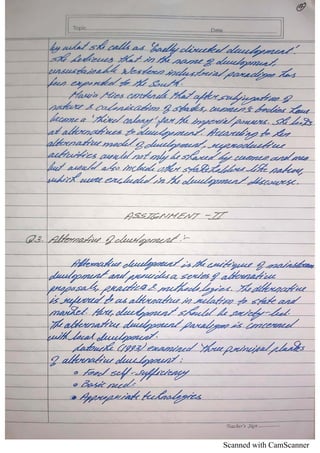 Topic
Date
by what she calls as 'badly directed development'.
She believes that in the name of development,
unsustainable Western industrial paradigm has
been expanded to the South.
Maria Mies contends that after subjugation of
nature & colonization of states, women's bodies have
become a 'third colony' for the imperial powers. She looks
at alternatives to development. According to her
alternative model of development, reproductive
activities would not only be shared by women and men
but would also include other stakeholders like nature,
which were excluded in the development discourse.
ASSIGNMENT - II
Q3. Alternative of development :-
Alternative development is the critique of mainstream
development and provides a series of alternative
proposals, practices & methodologies. The alternative
is referred to as alternative in relation to state and
market. Here, development should be society-led.
The alternative development paradigm is concerned
with local development.
Latouche (1993) examined three principal planks
of alternative development :
• Food self-sufficiency
• Basic needs
• Appropriate technologies
Teacher's Sign
Scanned with CamScanner